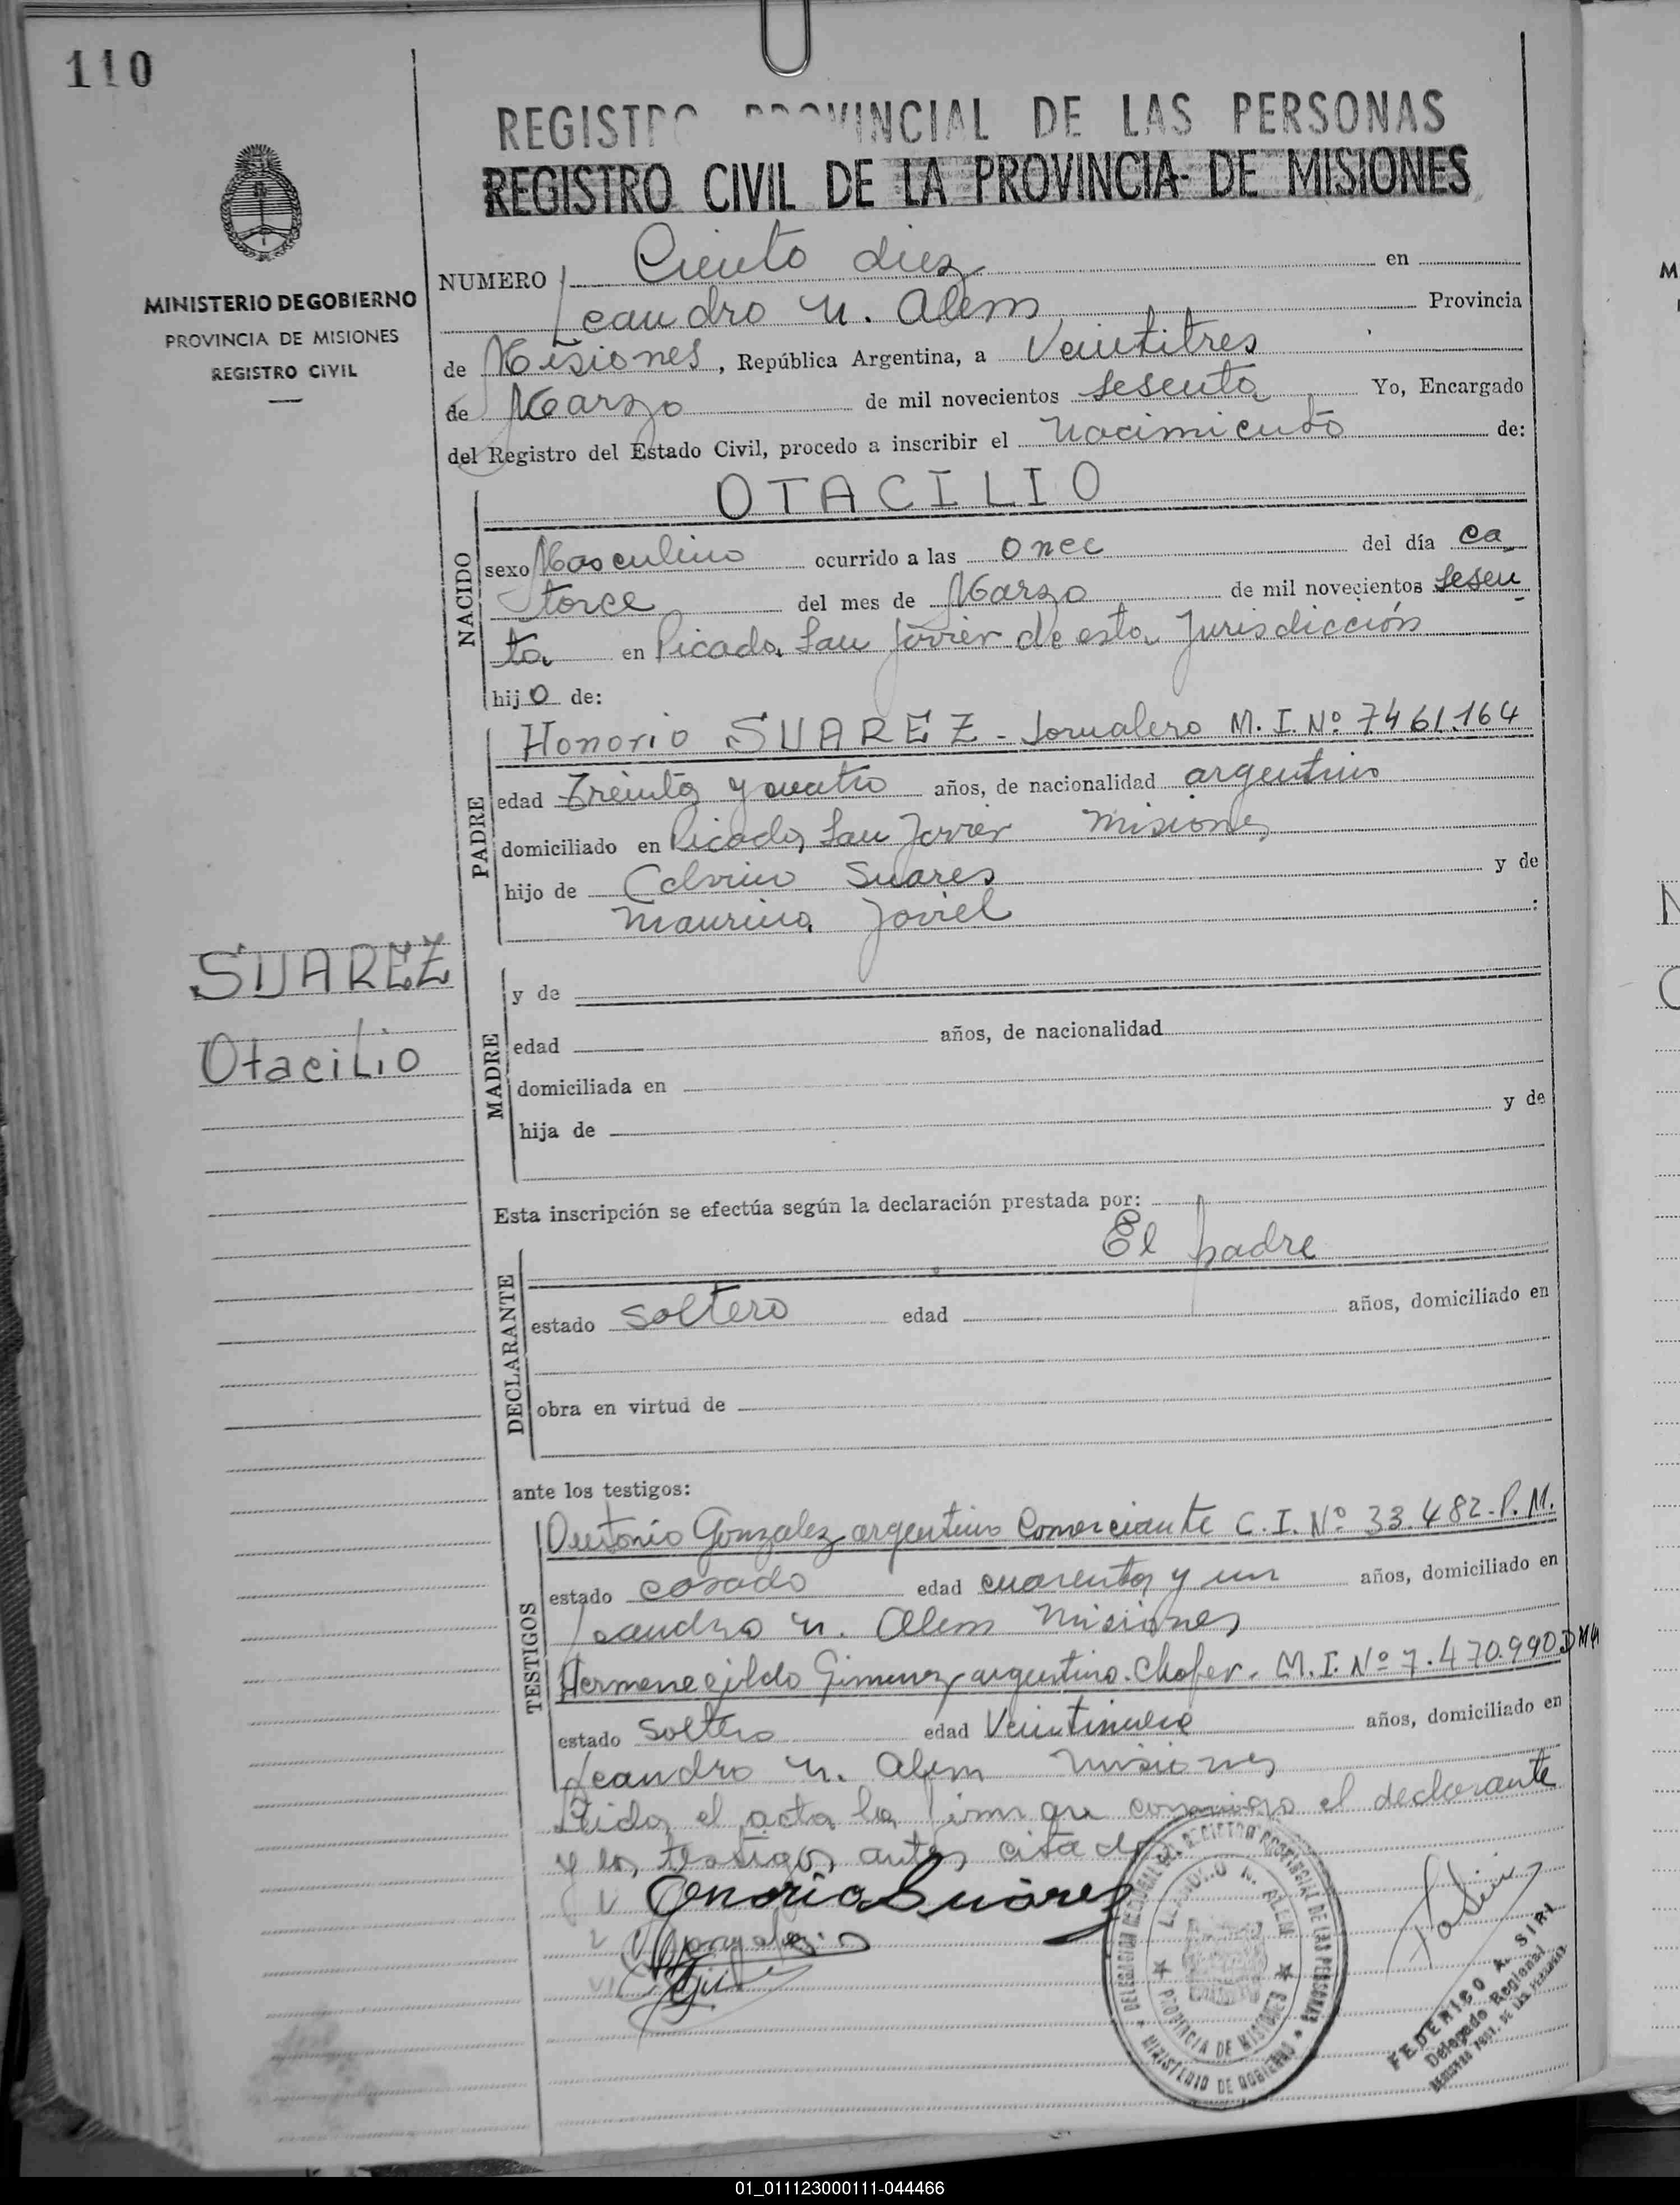 110
REGISTRO PROVINCIAL DE LAS PERSONAS
REGISTRO CIVIL DE LA PROVINCIA DE MISIONES
MINISTERIO DE GOBIERNO
PROVINCIA DE MISIONES
REGISTRO CIVIL
NUMERO Ciento diez en
Leandro N. Alem Provincia
de Misiones, República Argentina, a Veintitres
de Marzo de mil novecientos sesenta Yo, Encargado
del Registro del Estado Civil, procedo a inscribir el Nacimiento de:
NACIDO
OTACILIO
sexo Masculino ocurrido a las once del día ca
torce del mes de Marzo de mil novecientos sesen
ta en Picada San Javier de esta Jurisdicción
hijo de:
PADRE
Honorio SUAREZ - Jornalero M. I. Nº 7.461.164
edad Treinta y cuatro años, de nacionalidad argentino
domiciliado en Picada San Javier Misiones
hijo de Calvino Suares y de
Maurina Joviel :
SUAREZ
Otacilio
MADRE
y de
edad años, de nacionalidad
domiciliada en
hija de y de
Esta inscripción se efectúa según la declaración prestada por:
El padre
DECLARANTE
estado soltero edad años, domiciliado en
obra en virtud de
ante los testigos:
TESTIGOS
Antonio Gonzalez argentino Comerciante C. I. Nº 33.482-P. M.
estado casado edad cuarenta y un años, domiciliado en
Leandro N. Alem Misiones
Hermenegildo Gimenez argentino. Chofer. M. I. Nº 7.470.990 DM
estado soltero edad Veintinueve años, domiciliado en
Leandro N. Alem Misiones
Leida el acta la firman conmigo el declarante
y los testigos antes citado
Onorio Suárez
DELEGACION REGIONAL DEL REGISTRO PROVINCIAL DE LAS PERSONAS
LEANDRO N. ALEM
PROVINCIA DE MISIONES
MINISTERIO DE GOBIERNO
FEDERICO A. SIRI
Delegado Regional
REGISTRO PROV. DE LAS PERSONAS
01_011123000111-044466